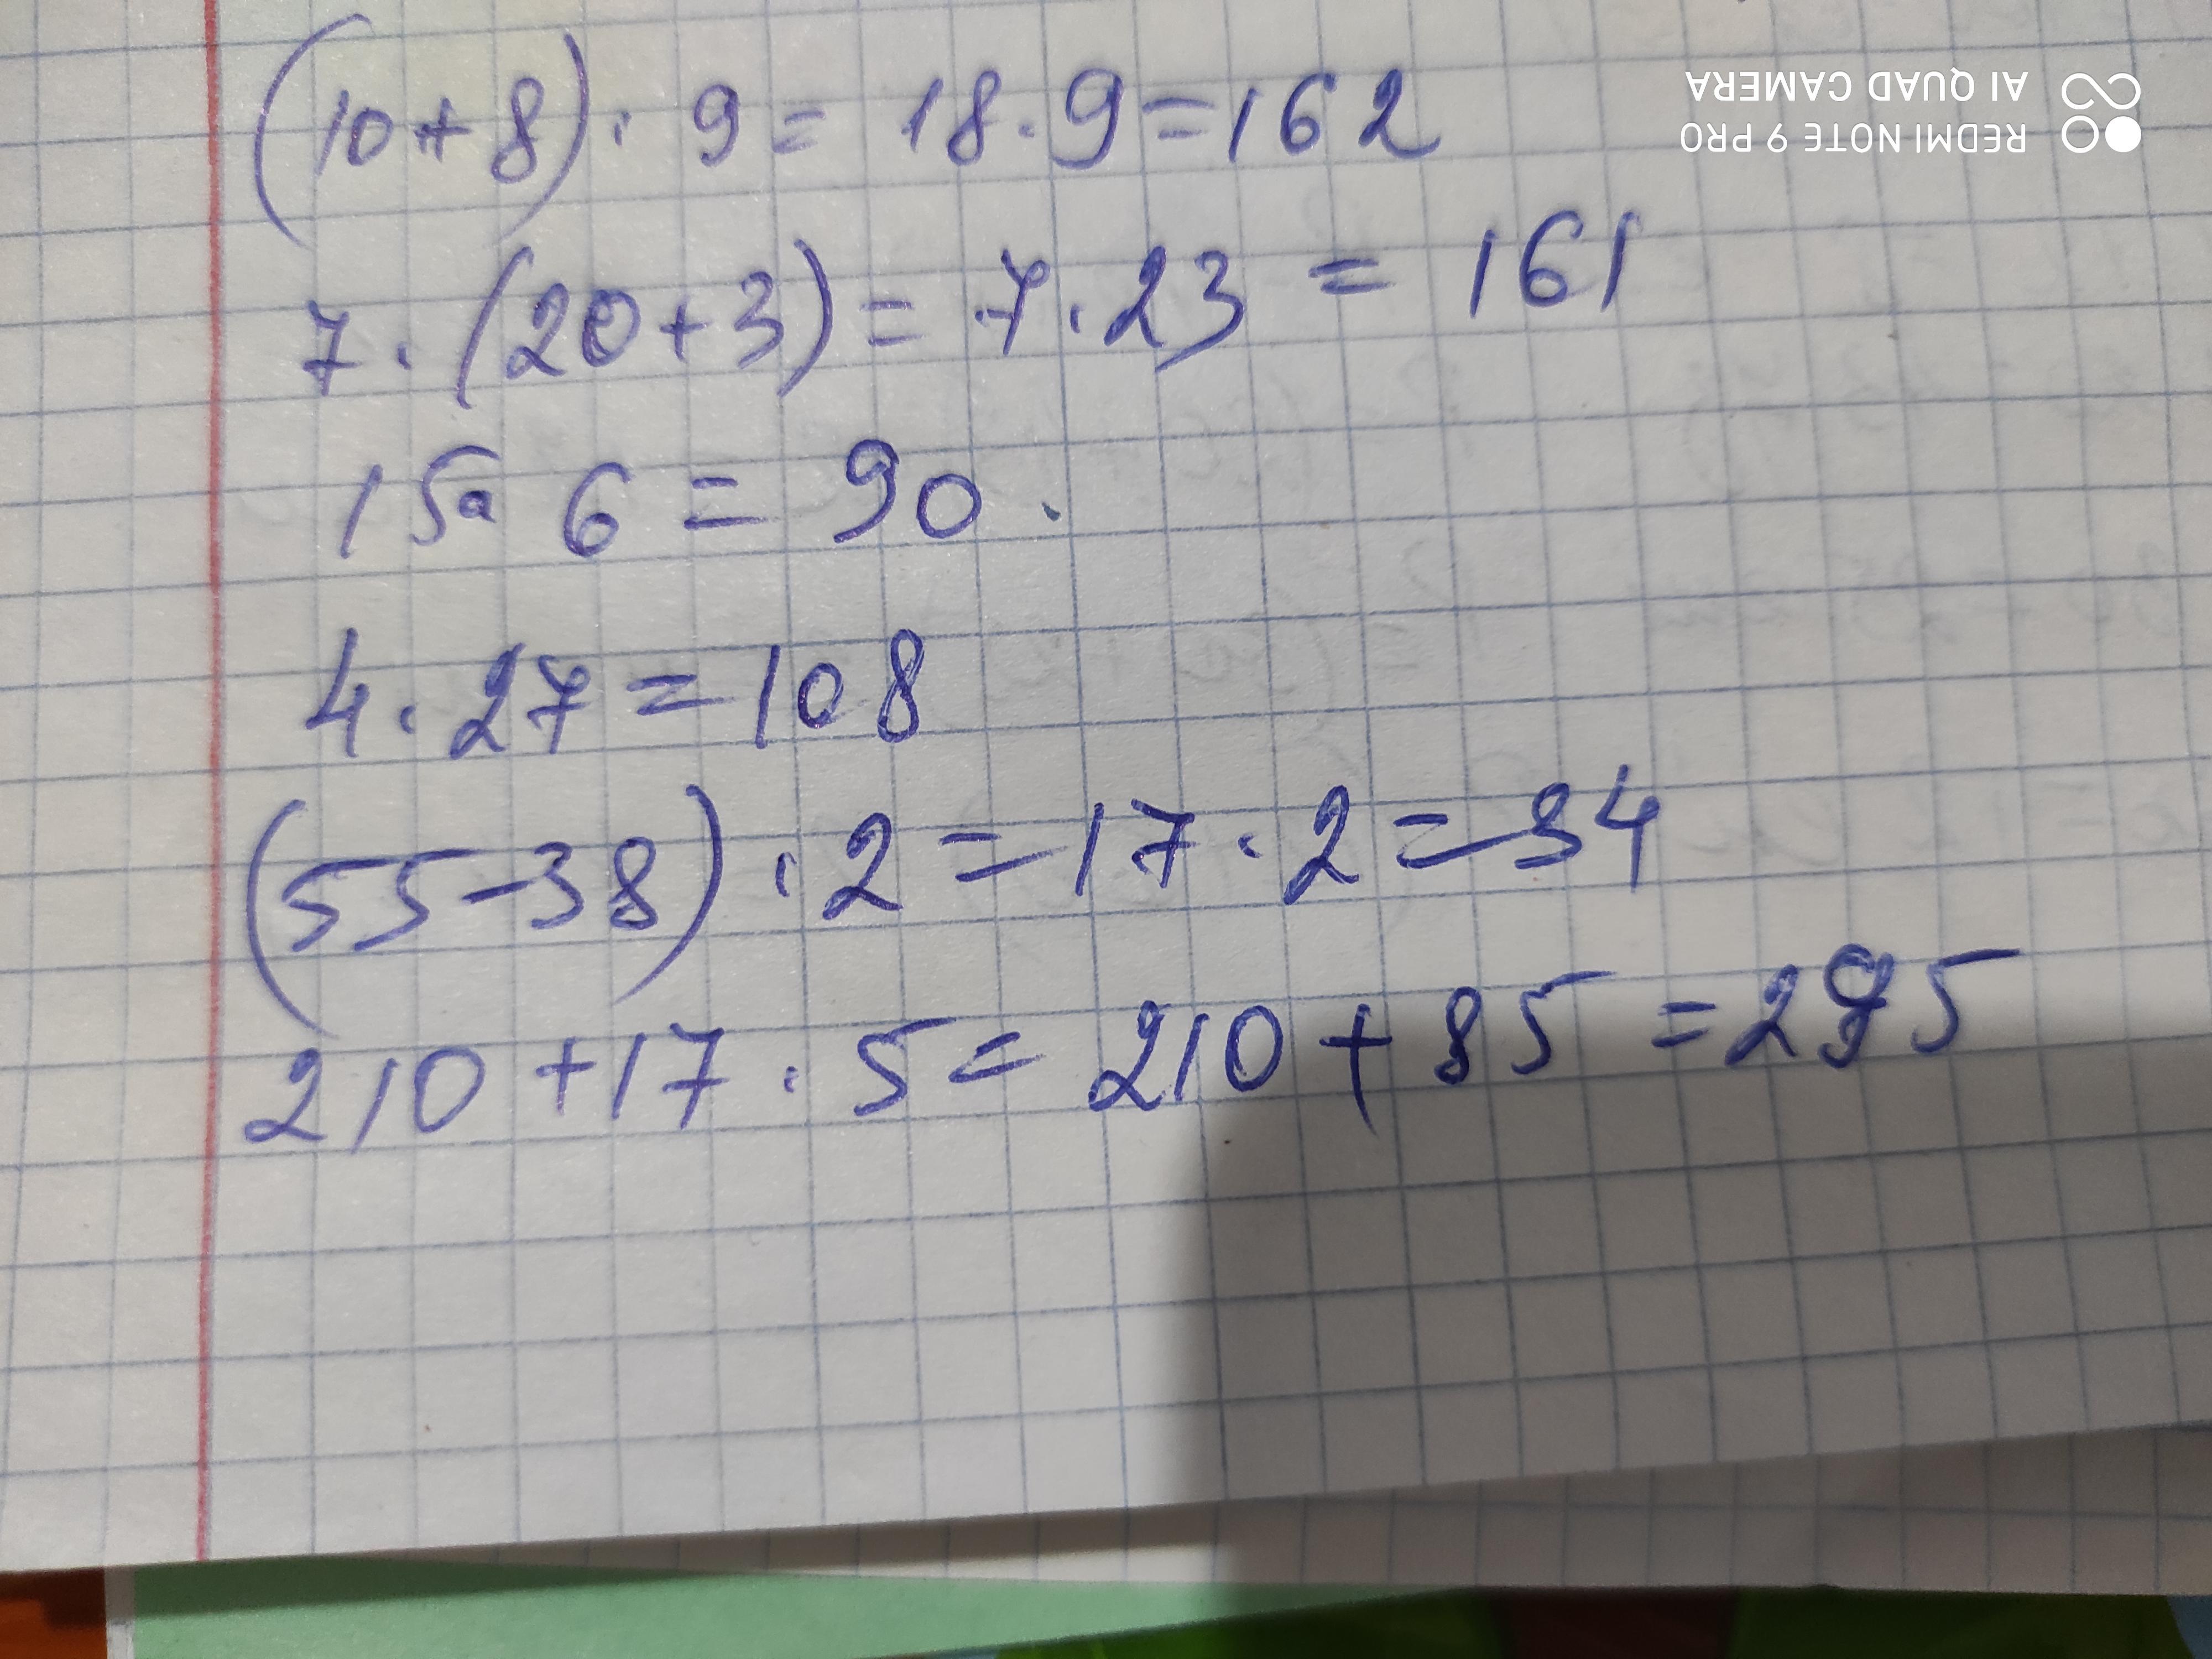 AI QUAD CAMERA
REDMI NOTE 9 PRO
(10+8)·9=18·9=162
7·(20+3)=7·23=161
15·6=90.
4·27=108
(55-38)·2=17·2=34
210+17·5=210+85=295